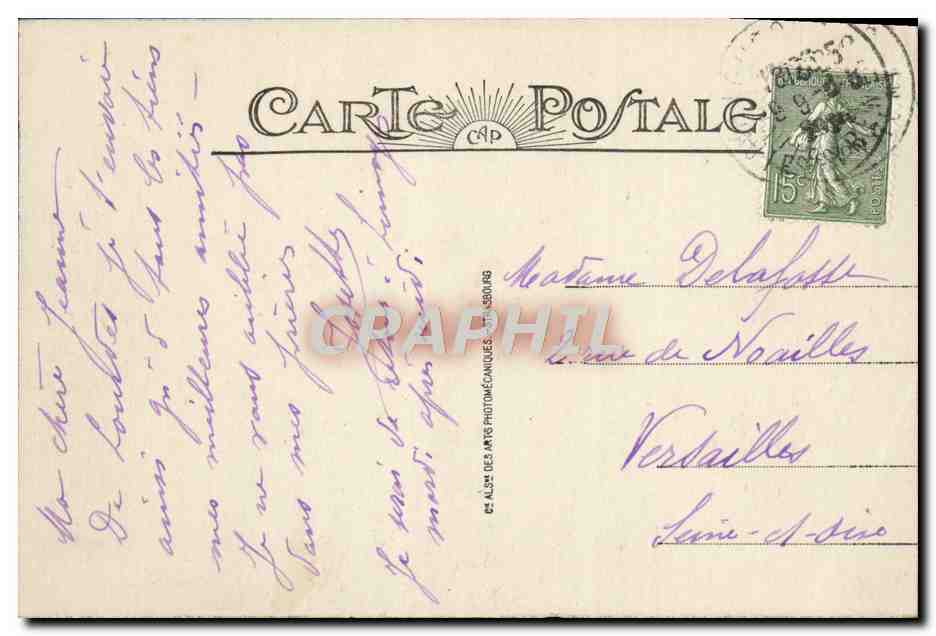 CARTE POSTALE
CAP
15c
POSTES
Ma chère Jeanne
De Lourdes je t'envoie
ainsi qu'à tous les tiens
mes meilleures amitiés –
Je ne vous oublie pas
dans mes prières
Je serai de
mardi après midi
Cie ALSne DES ARTS PHOTOMÉCANIQUES - STRASBOURG
Madame Delafosse
2 rue de Noailles
Versailles
Seine-et-Oise
CRAPHIL